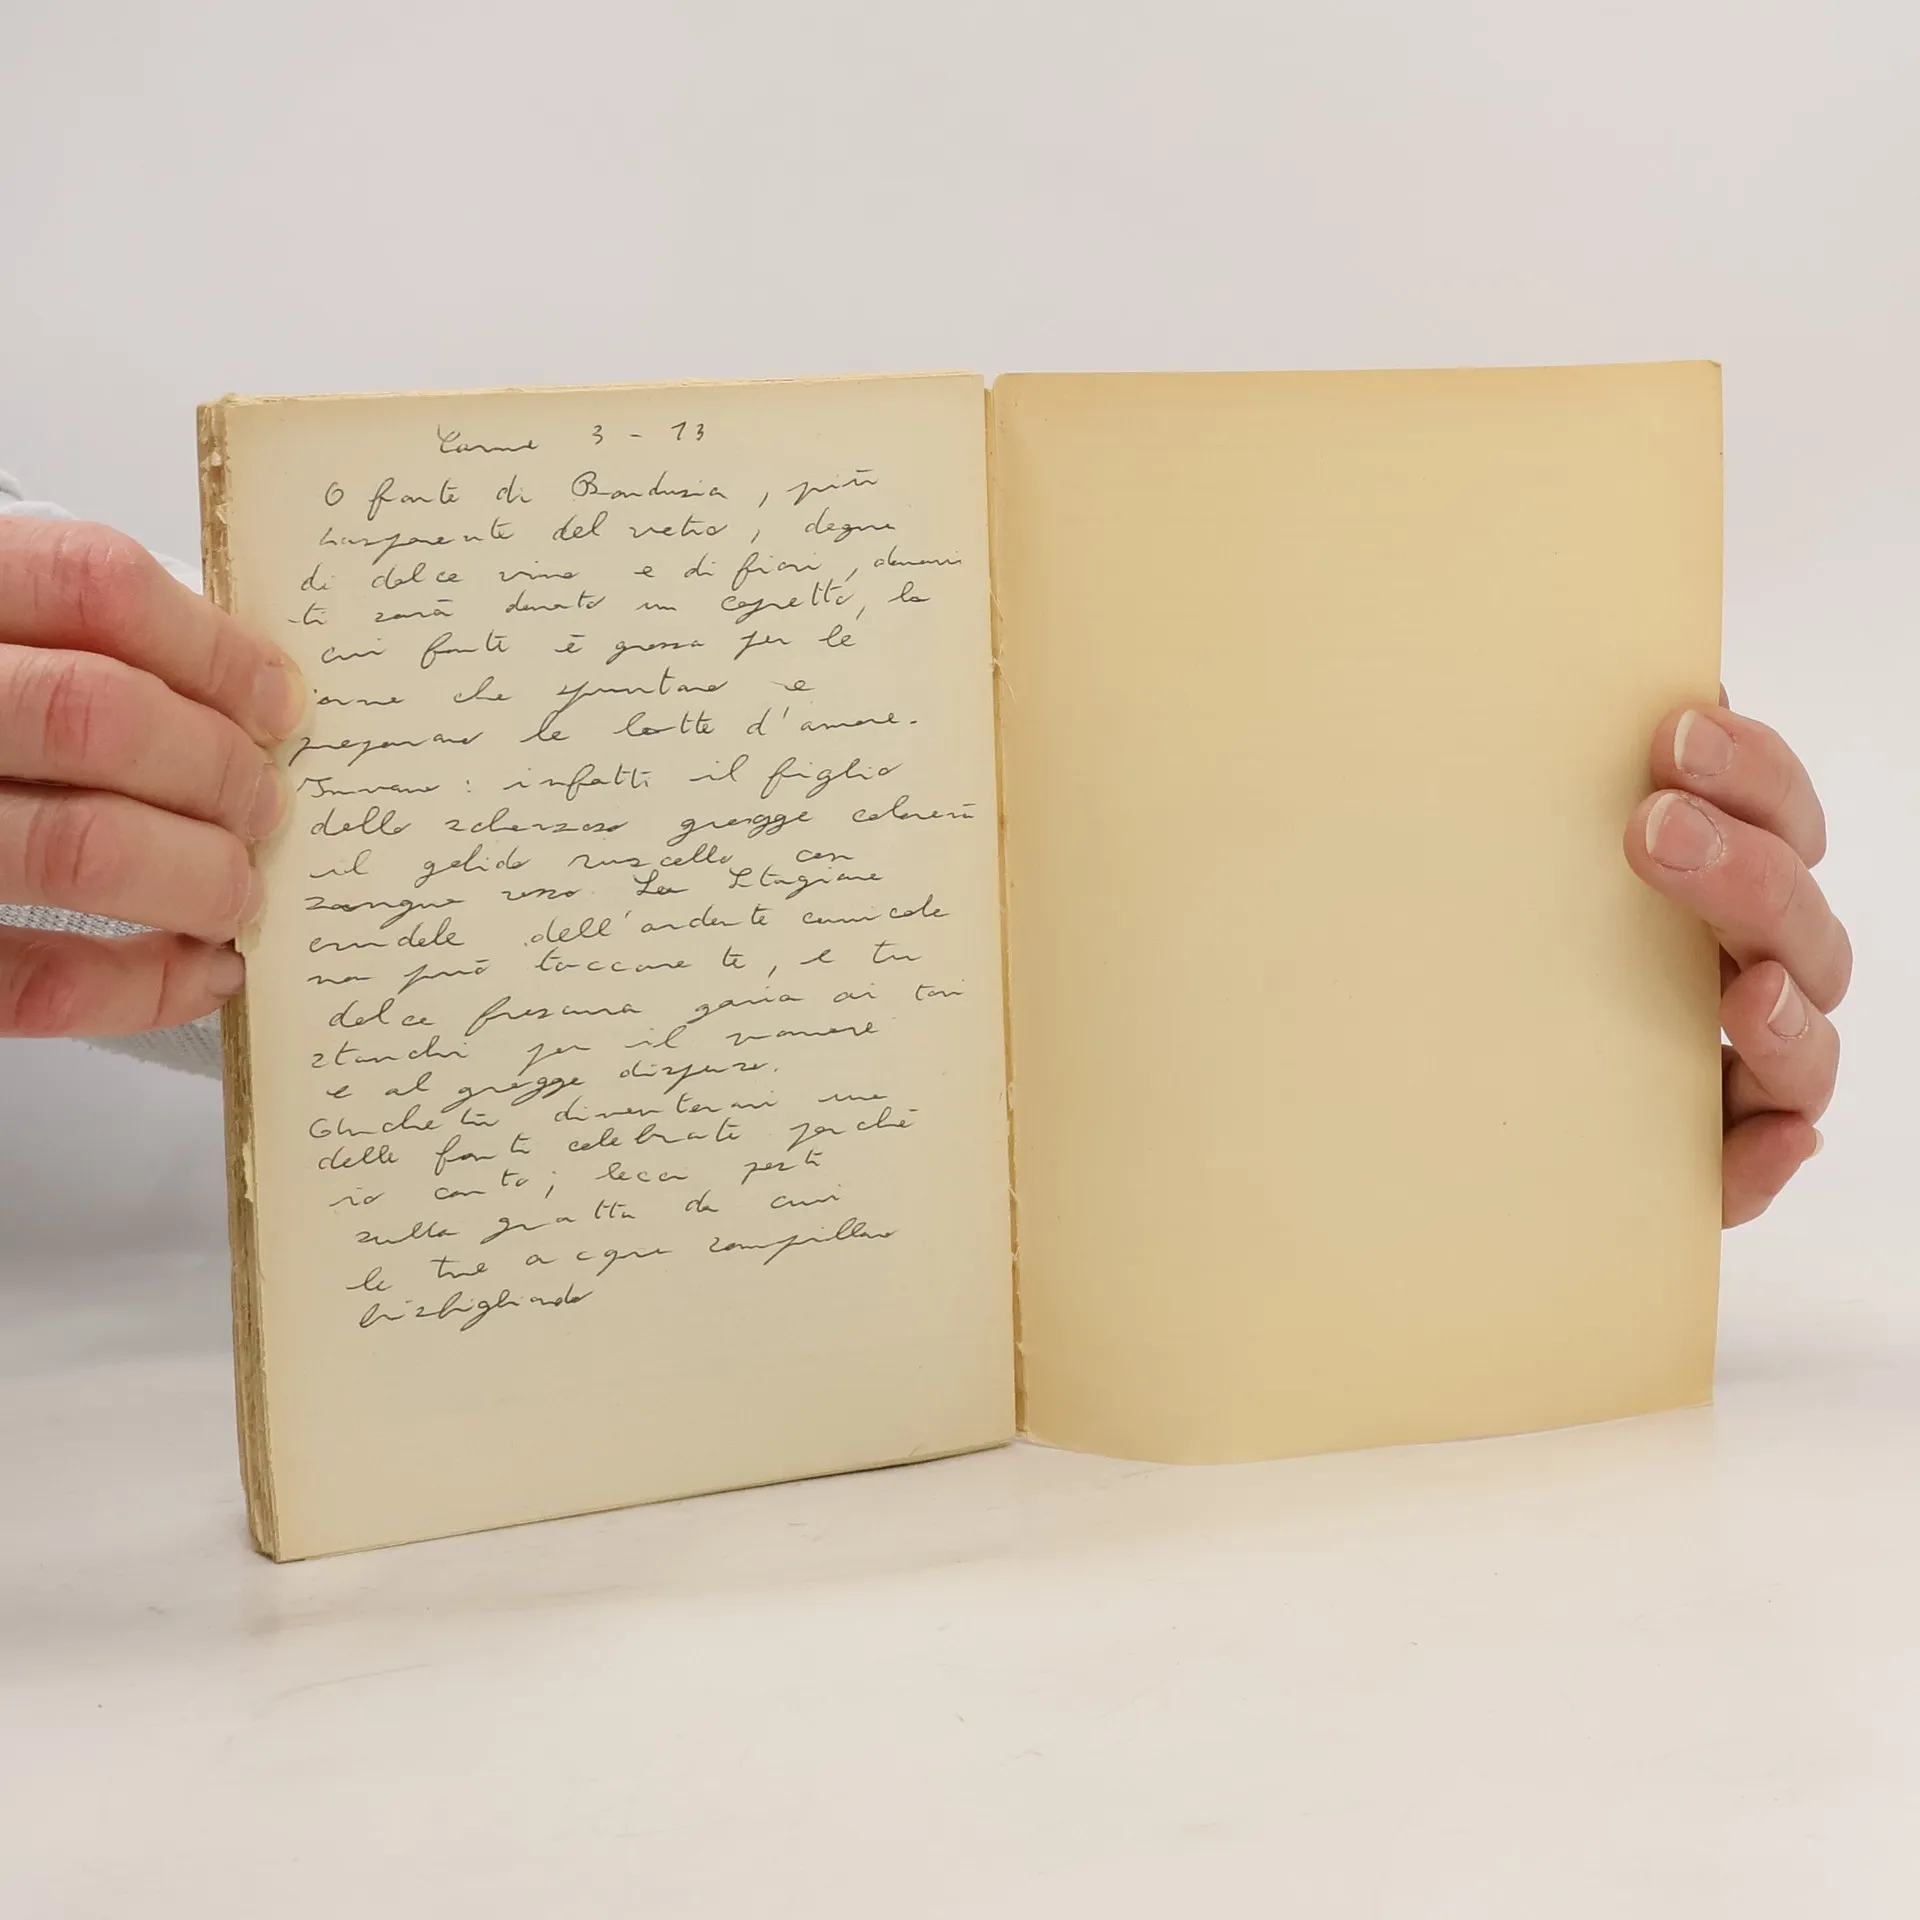 Carme 3 - 13
O fonte di Bandusia, più
trasparente del vetro, degna
di dolce vino e di fiori, domani
ti sarà donato un capretto, la
cui fronte è grossa per le
corna che spuntano e
preparano le lotte d'amore.
Invano: infatti il figlio
dello scherzoso gregge colorerà
il gelido ruscello con
sangue rosso. La Stagione
crudele dell'ardente canicola
non può toccare te, e tu
dolce frescura  ai tori
stanchi per il vomere
e al gregge disperso.
Anche tu diventerai una
delle fonti celebrate perché
io canto; lecci posti
sulla grotta da cui
le tue acque zampillano
bisbigliando